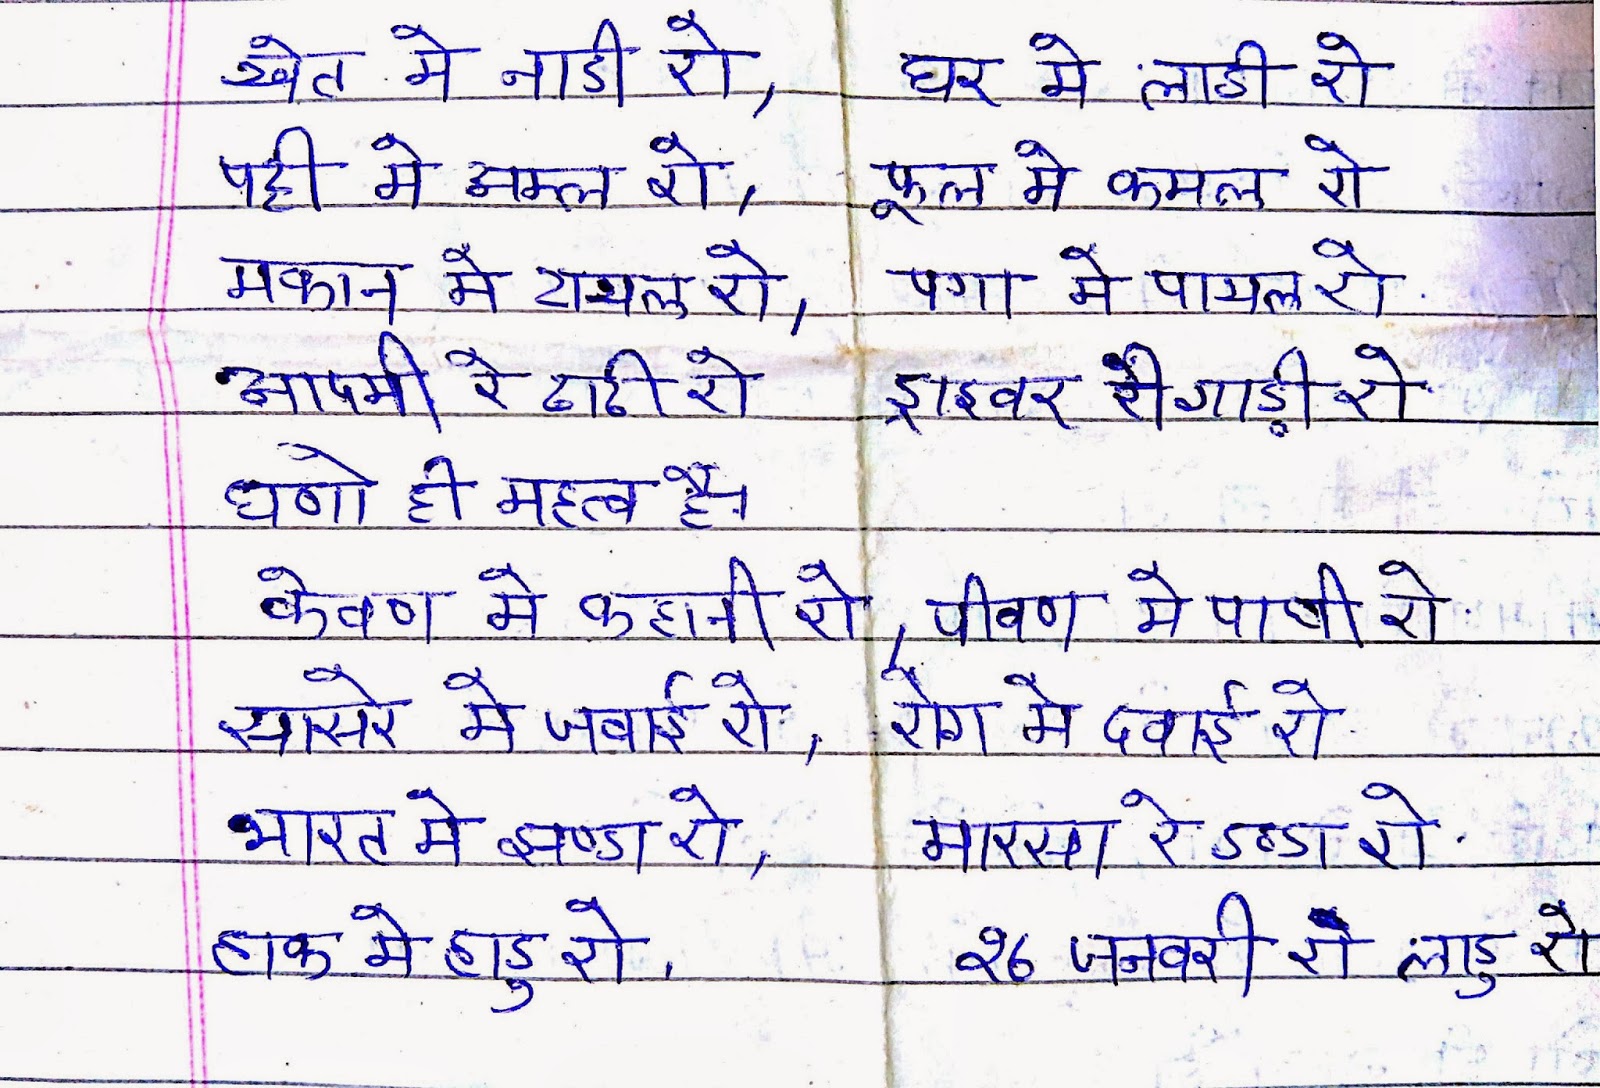 खेत मे नाडी रो, घर मे लाडी रो
पट्टी मे अम्ल रो, फूल मे कमल रो
मकान मे टायल रो, पगा मे पायल रो
आदमी रे दाढी रो ड्राइवर रे गाड़ी रो
घणो ही महत्व है।
केवण मे कहानी रो, पीवण मे पाणी रो
सासरे मे जवाई रो, रोग मे दवाई रो
भारत मे झण्डा रो, मारसा रे डण्डा रो
हाक मे हाडु रो, २६ जनवरी रो लाडु रो